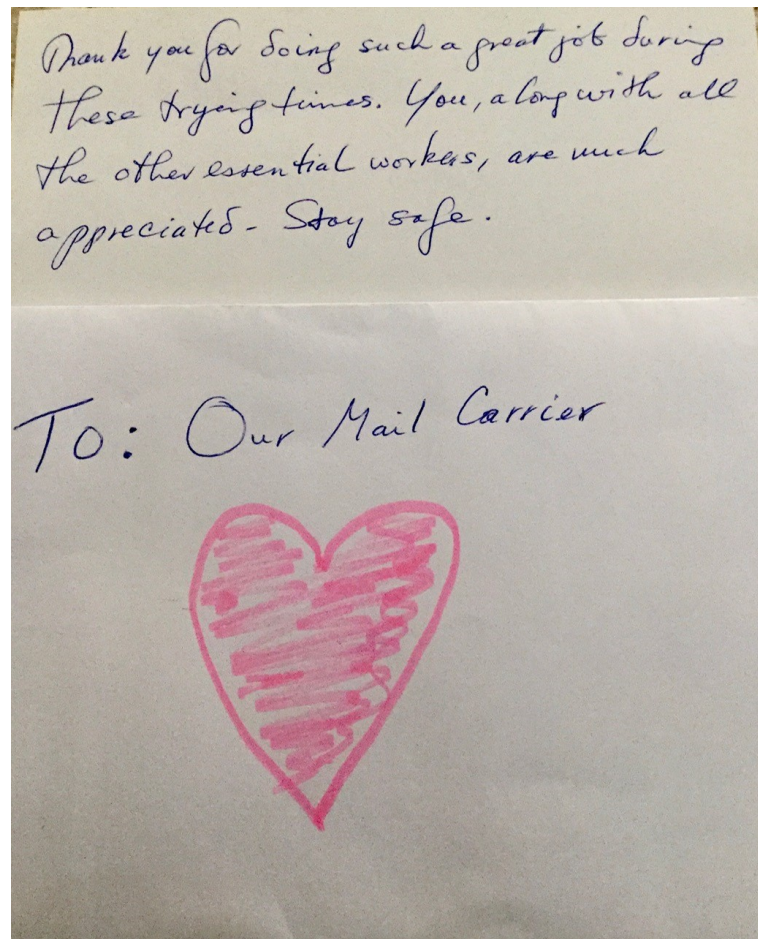 Thank you for doing such a great job during
these trying times. You, along with all
the other essential workers, are much
appreciated - Stay safe.
To: Our Mail Carrier